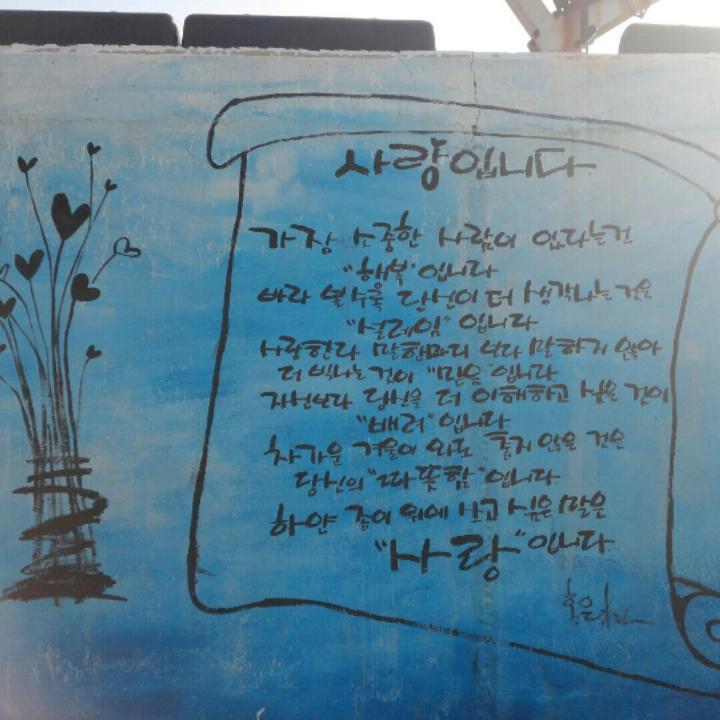 사랑입니다
가장 소중한 사람이 있다는건
"행복"입니다
바라 볼수록 당신이 더 생각나는 것은
"설레임"입니다
사랑한다 말한마디 보다 말하지 않아
더 빛나는 것이 "믿음"입니다
자신보다 당신을 더 이해하고 싶은 것이
"배려"입니다
차가운 겨울이 와도 춥지 않은 것은
당신의 "따뜻함"입니다
하얀 종이 위에 쓰고 싶은 말은
"사랑"입니다